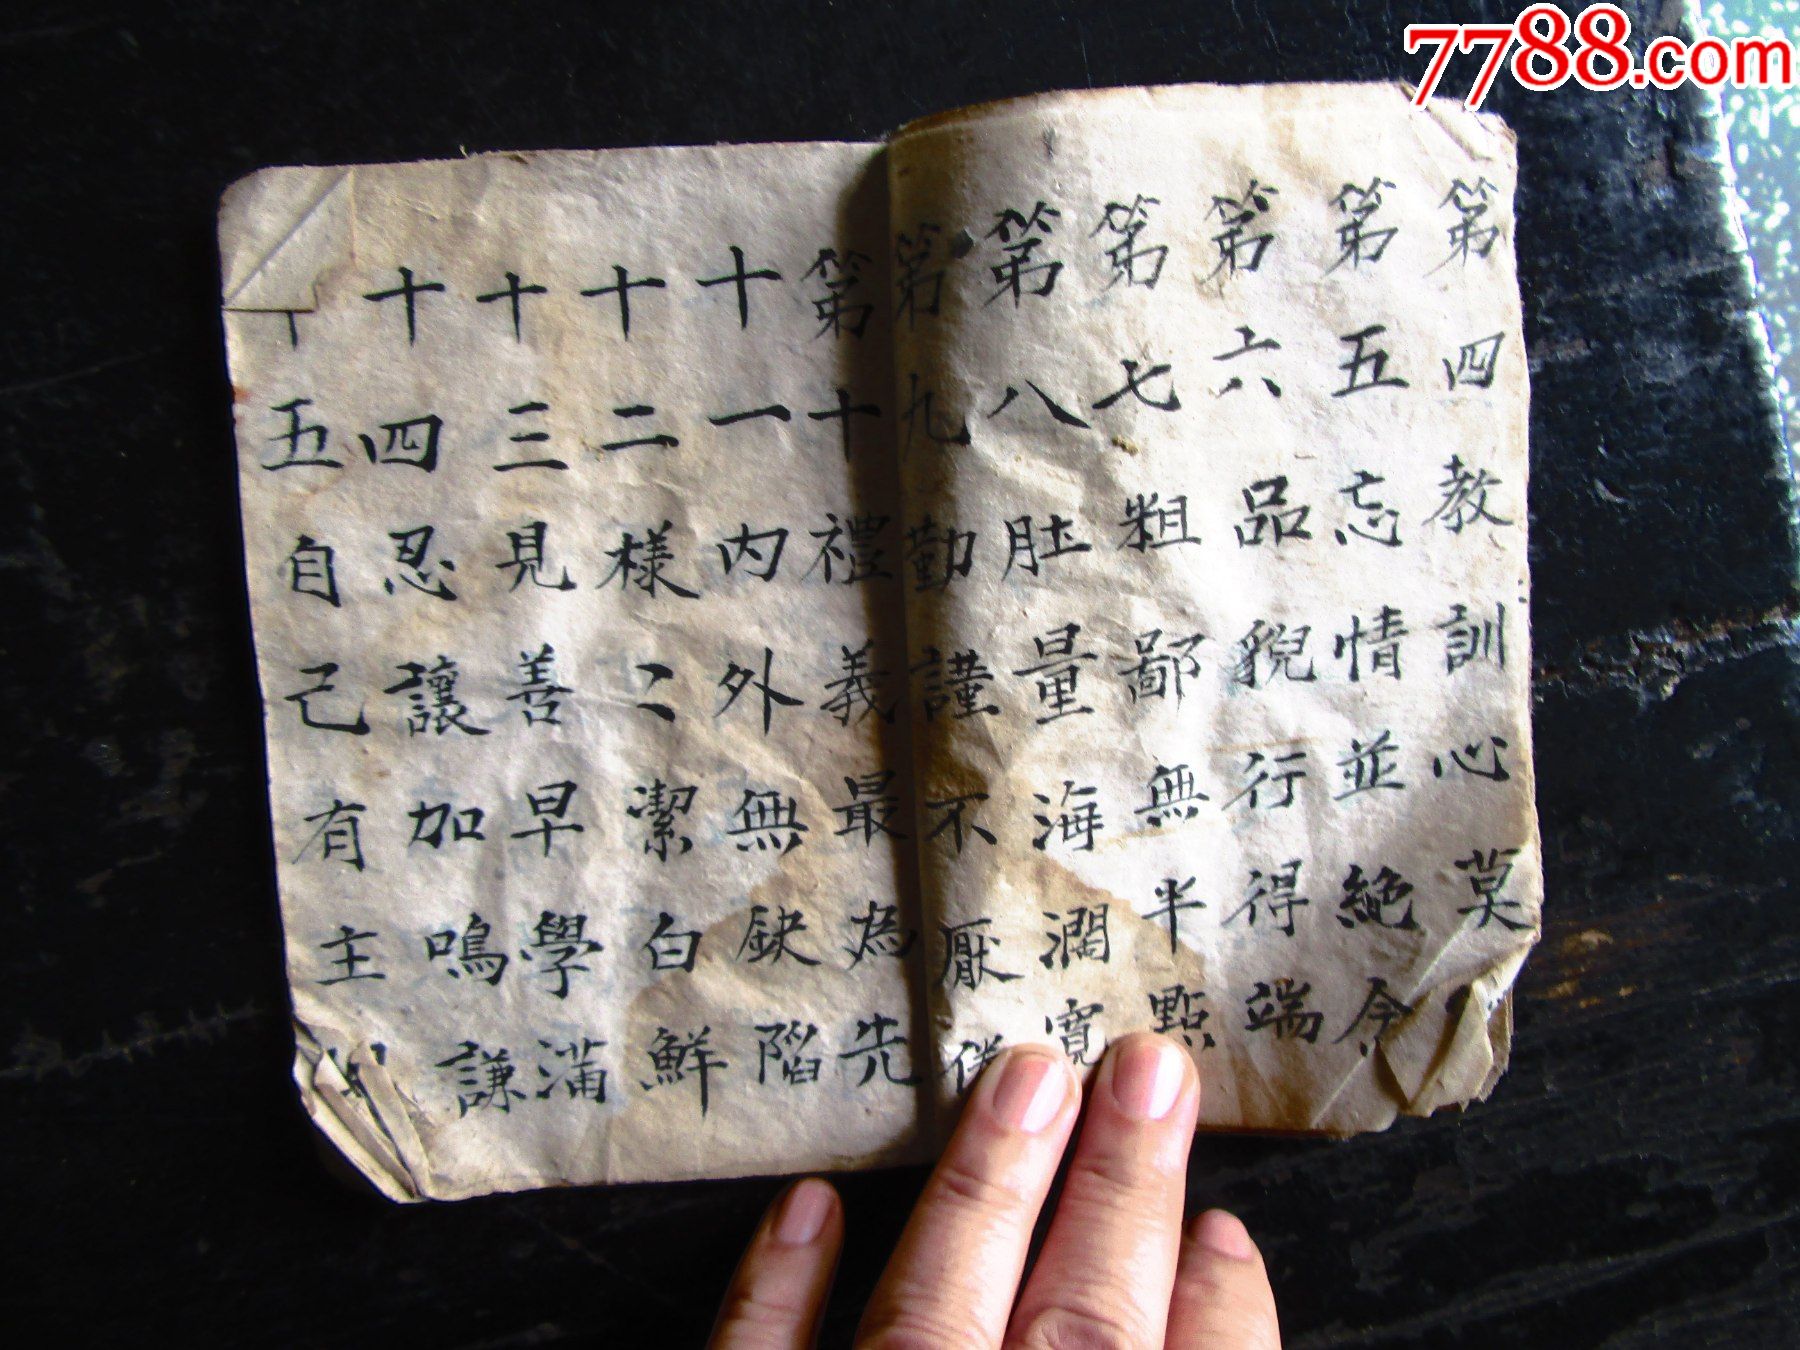 7788.com
第四教訓心莫
第五忘情並絶
第六品貎行得端
第七粗鄙無半點
第八肚量海濶寬
第九勤謹不厭
第十禮義最為先
十一內外無缺陷
十二樣〻潔白鮮
十三見善早學滿
十四忍讓加鳴謙
五自己有主